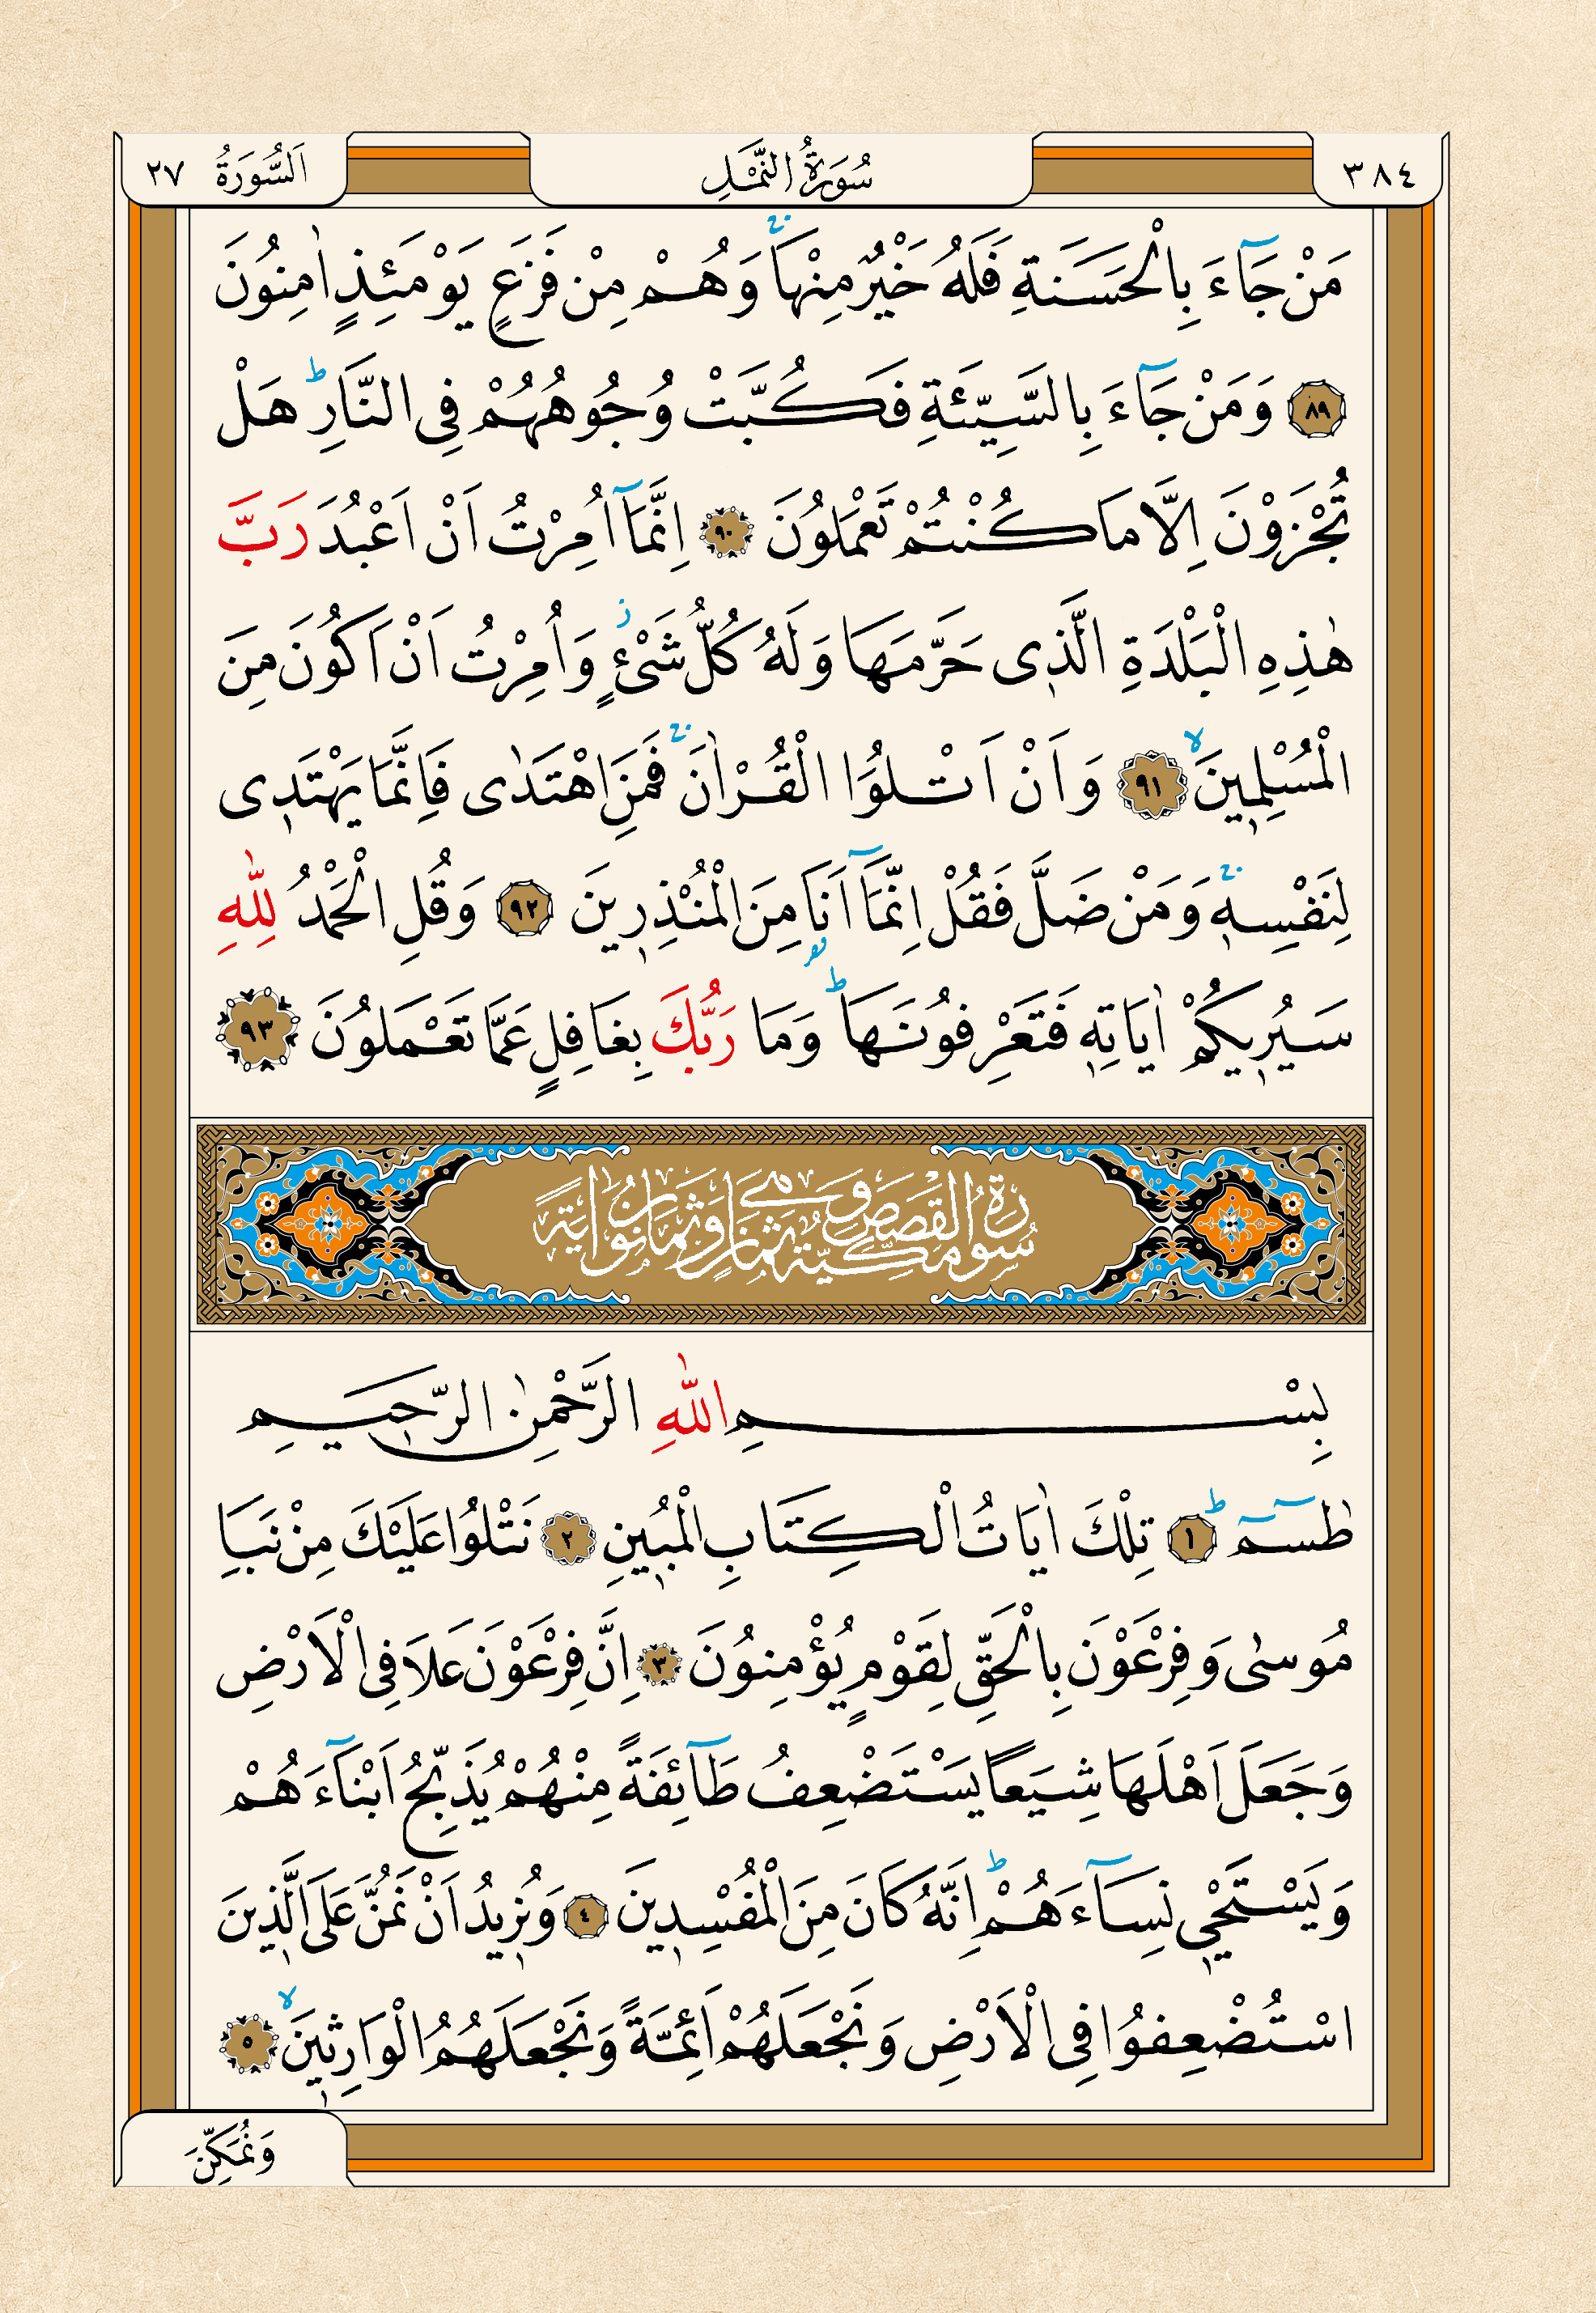 ٣٨٤ سُورَةُ النَّمْلِ اَلسُّورَةُ ٢٧
مَنْ جَٓاءَ بِالْحَسَنَةِ فَلَهُ خَيْرٌ مِنْهَاۚ وَهُمْ مِنْ فَزَعٍ يَوْمَئِذٍ اٰمِنُونَ
﴿٨٩﴾ وَمَنْ جَٓاءَ بِالسَّيِّئَةِ فَكُبَّتْ وُجُوهُهُمْ فِى النَّارِۜ هَلْ
تُجْزَوْنَ اِلَّا مَا كُنْتُمْ تَعْمَلُونَ ﴿٩٠﴾ اِنَّمَٓا اُمِرْتُ اَنْ اَعْبُدَ رَبَّ
هٰذِهِ الْبَلْدَةِ الَّذ۪ى حَرَّمَهَا وَلَهُ كُلُّ شَىْءٍۘ وَاُمِرْتُ اَنْ اَكُونَ مِنَ
الْمُسْلِم۪ينَۙ ﴿٩١﴾ وَاَنْ اَتْلُوَا الْقُرْاٰنَۚ فَمَنِ اهْتَدٰى فَاِنَّمَا يَهْتَد۪ى
لِنَفْسِه۪ۚ وَمَنْ ضَلَّ فَقُلْ اِنَّمَٓا اَنَا۬ مِنَ الْمُنْذِر۪ينَ ﴿٩٢﴾ وَقُلِ الْحَمْدُ لِلّٰهِ
سَيُر۪يكُمْ اٰيَاتِه۪ فَتَعْرِفُونَهَاۜ وَمَا رَبُّكَ بِغَافِلٍ عَمَّا تَعْمَلُونَ ﴿٩٣﴾
سُورَةُ الْقَصَصِ مَكِّيَّةٌ وَهِىَ ثَمَانٍ وَثَمَانُونَ اٰيَةً
بِسْمِ اللّٰهِ الرَّحْمٰنِ الرَّح۪يمِ
طٰسٓمٓۜ ﴿١﴾ تِلْكَ اٰيَاتُ الْكِتَابِ الْمُب۪ينِ ﴿٢﴾ نَتْلُوا عَلَيْكَ مِنْ نَبَاِ
مُوسٰى وَفِرْعَوْنَ بِالْحَقِّ لِقَوْمٍ يُؤْمِنُونَ ﴿٣﴾ اِنَّ فِرْعَوْنَ عَلَا فِى الْاَرْضِ
وَجَعَلَ اَهْلَهَا شِيَعًا يَسْتَضْعِفُ طَٓائِفَةً مِنْهُمْ يُذَبِّحُ اَبْنَٓاءَهُمْ
وَيَسْتَحْي۪ى نِسَٓاءَهُمْۜ اِنَّهُ كَانَ مِنَ الْمُفْسِد۪ينَ ﴿٤﴾ وَنُر۪يدُ اَنْ نَمُنَّ عَلَى الَّذ۪ينَ
اسْتُضْعِفُوا فِى الْاَرْضِ وَنَجْعَلَهُمْ اَئِمَّةً وَنَجْعَلَهُمُ الْوَارِث۪ينَۙ ﴿٥﴾
وَنُمَكِّنَ